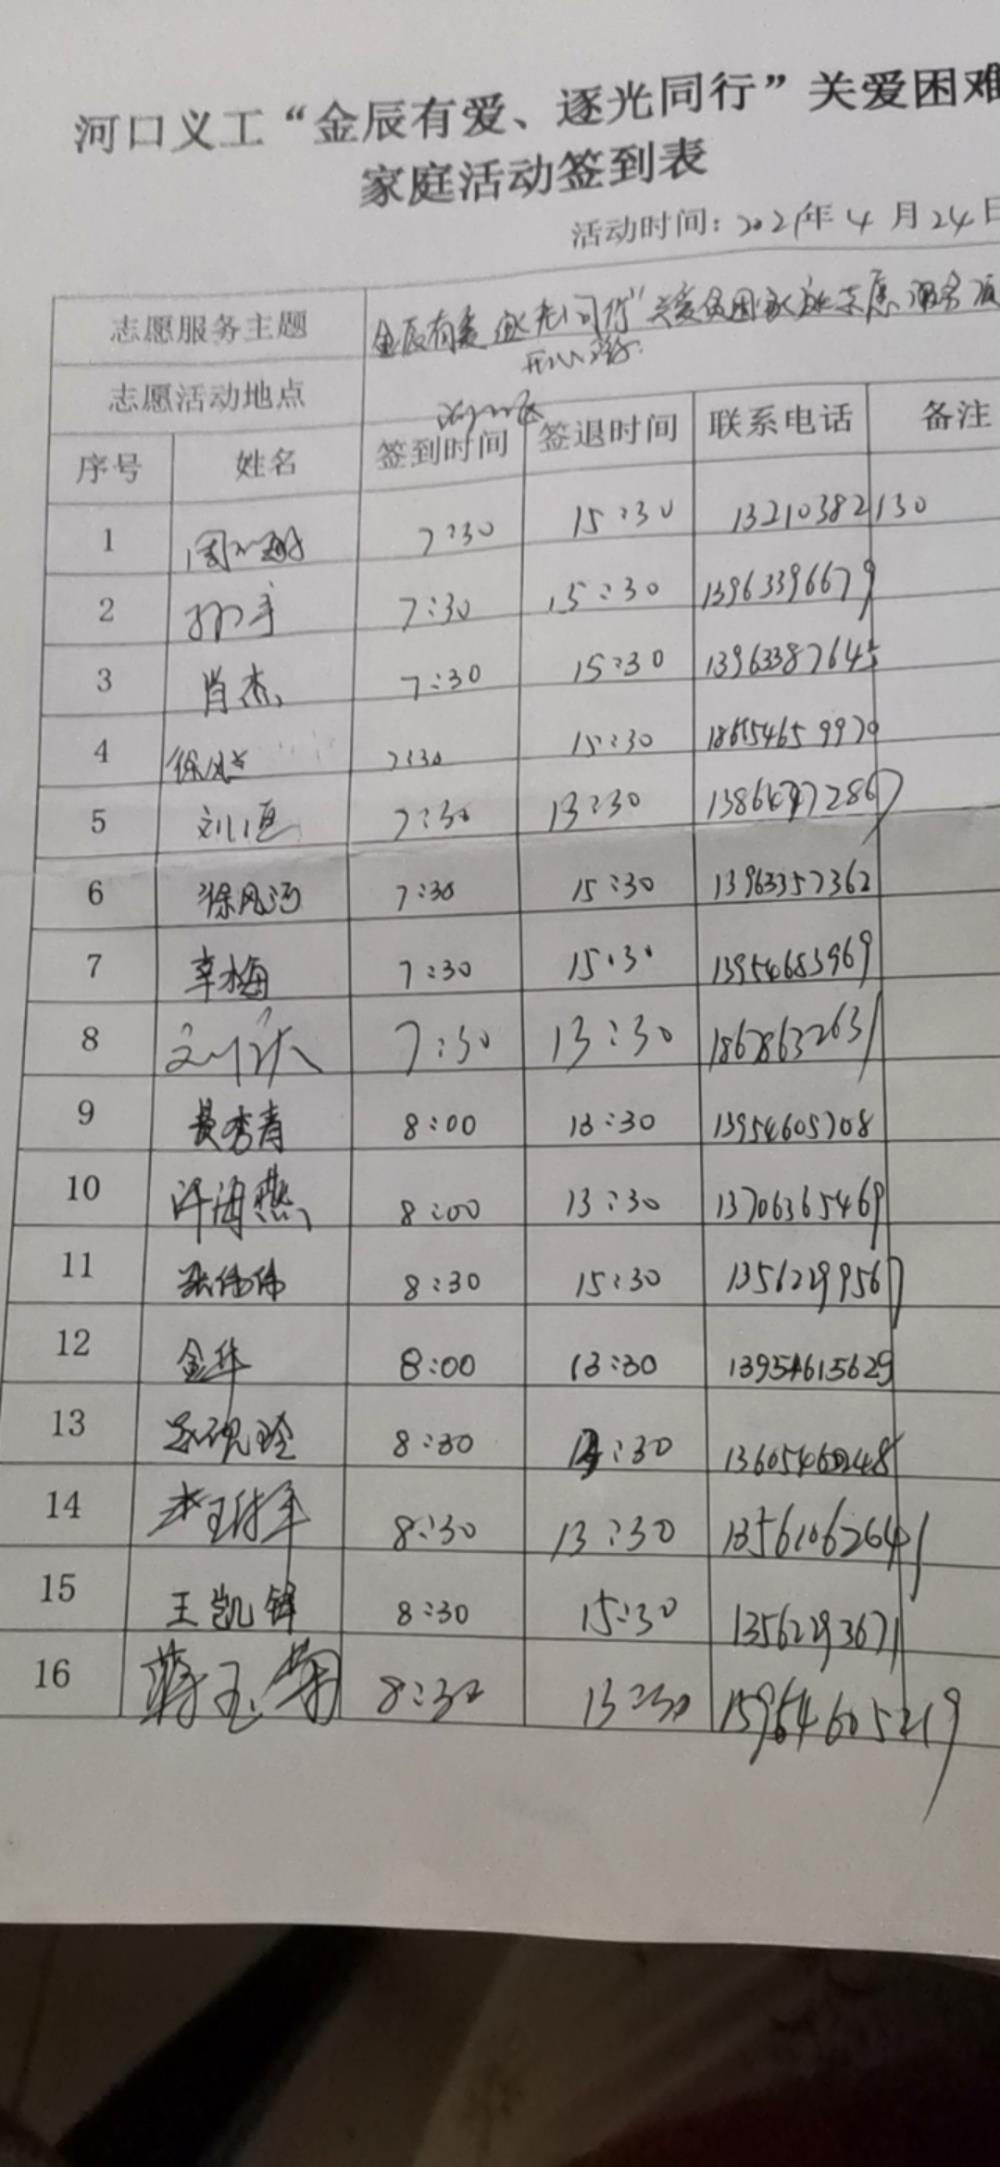 河口义工“金辰有爱、逐光同行”关爱困难
家庭活动签到表
活动时间：2021年4月24日
志愿服务主题 金辰有爱 逐光同行”关爱贫困家庭
志愿活动地点
序号 姓名 签到时间 签退时间 联系电话 备注
1 7:30 15:30 13210382130
2 7:30 15:30 13963396679
3 肖杰 7:30 15:30
4 7:30 15:30
5 刘恒 7:30 13:30
6 徐风河 7:30 15:30 13963357362
7 辛梅 7:30 15:30 13954683969
8 7:30 13:30 18678632631
9 8:00 13:30 13954605708
10 许海燕 8:00 13:30 13706365469
11 张伟伟 8:30 15:30 13562299567
12 金华 8:00 13:30 13954615629
13 8:30 :30
14 8:30 13:30 13561062641
15 王凯锋 8:30 15:30 13562293671
16 蒋玉菊 8:30 13:30 15964605219